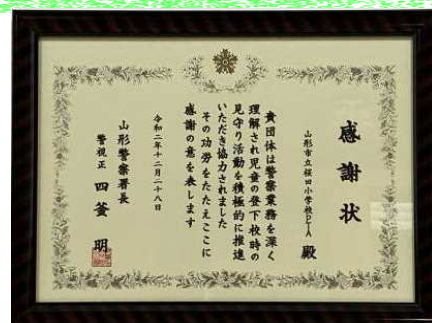 感謝状
山形市立桜田小学校PTA 殿
貴団体は警察業務を深く
理解され児童の登下校時の
見守り活動を積極的に推進
いただき協力されました
その功労をたたえここに
感謝の意を表します
令和二年十二月二十八日
山形警察署長
警視正 四釜 明